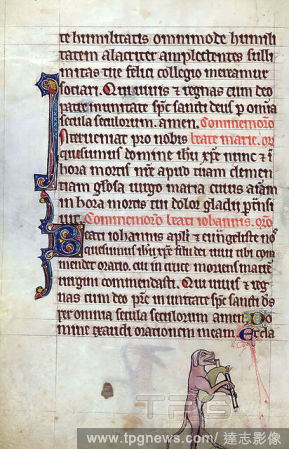 te humilitatis omnimode humili
tatem alacriter amplectentes sulli
mitas tue felici collegio mereamur
sociari. Qui uiuis & regnas cum deo
patre in unitate spc sancti deus p omnia
secula seculorum. amen. Commemoro
Nteruemat pro nobis beate marie. or
quesumus domine ihu xpe nunc & i
hora mortis nre apud tuam clemen
tiam glosa uirgo maria cuius aiam
in hora mortis tui dolor gladii ptransi
uit. Commemoro beati iohannis. oro
Beati iohannis apli & euangeliste no
quesumus ihu xpe filii dei uiui tibi com
mendet oratio. cui in cruce moriens matre
uirgini commendasti. Qui uiuis & reg
nas cum deo pre in unitate spc sancti ds
per omnia secula seculorum amen. Do
mine exaudi orationem meam. Et cla
TPG
www.tpgnews.com / 達志影像